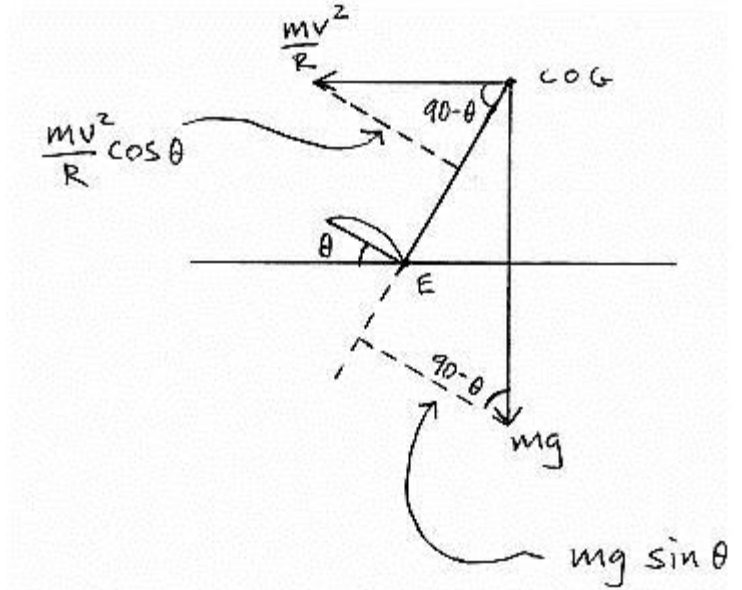 mv²/R
COG
90-θ
mv²/R cos θ
θ
E
90-θ
mg
mg sin θ